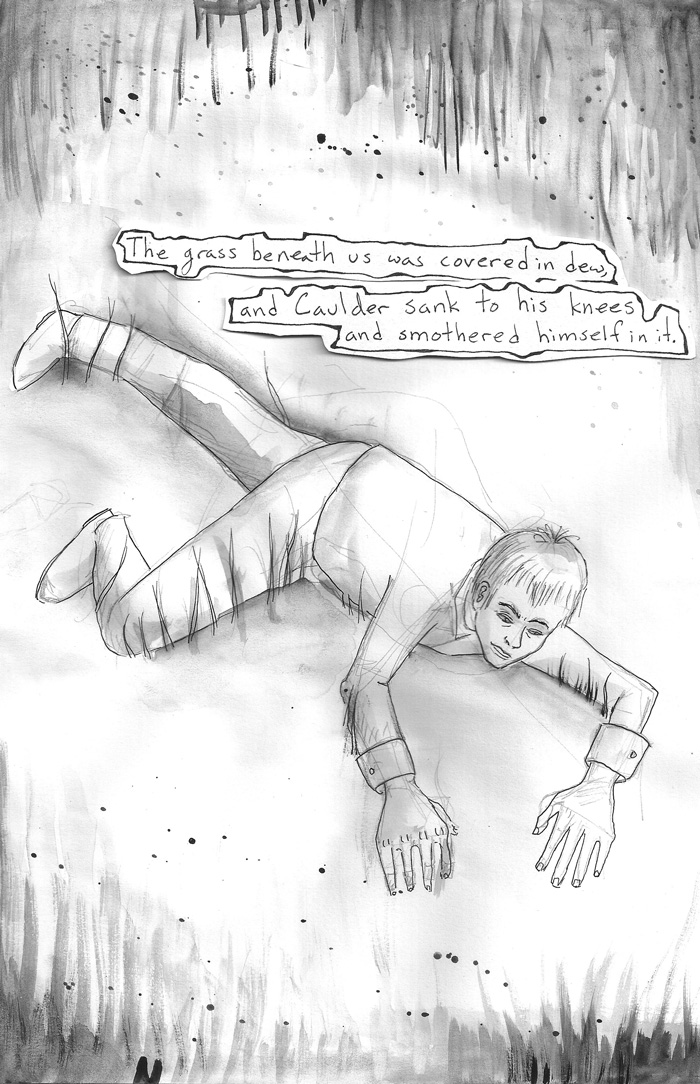 The grass beneath us was covered in dew,
and Caulder sank to his knees
and smothered himself in it.